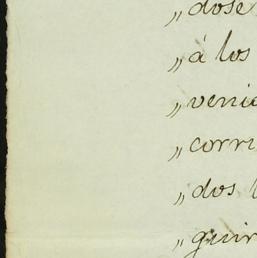 „dose
„á los
„venid
„corri
„dos l
„guir